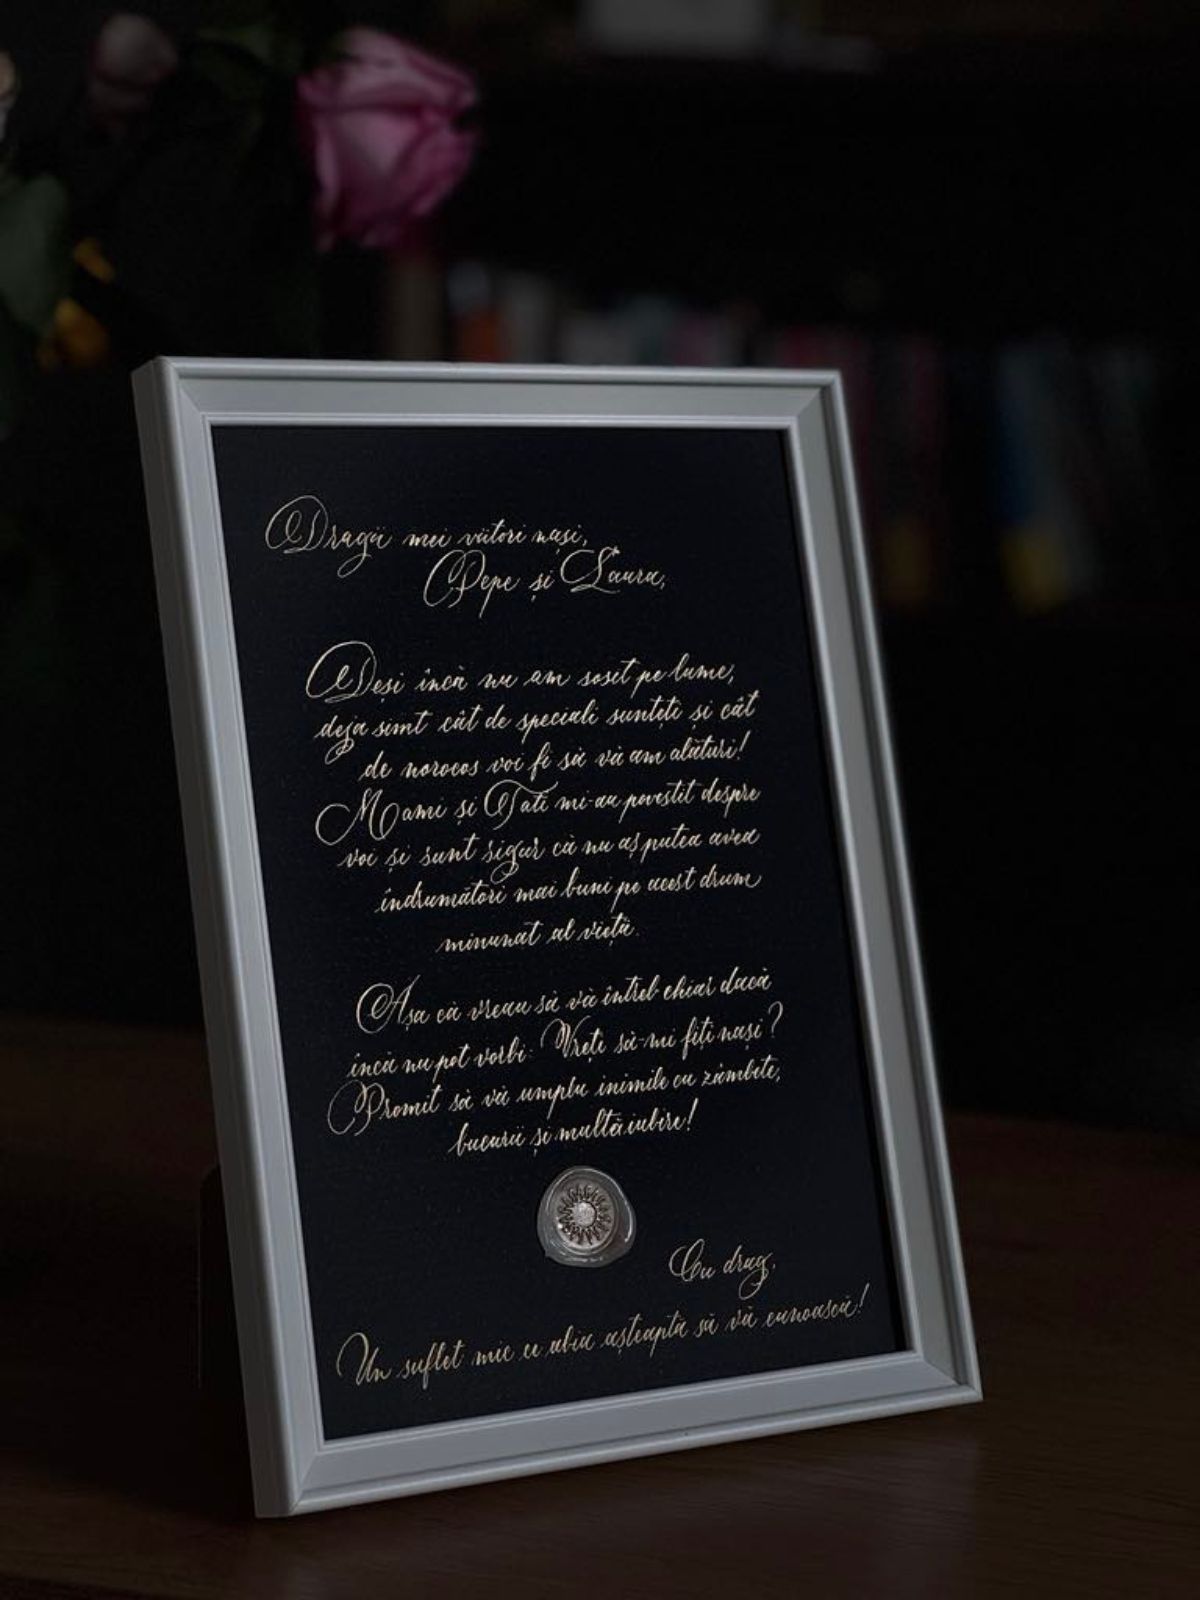 Dragii mei viitori nași,
Pepe și Laura,
Deși încă nu am sosit pe lume,
deja simt cât de speciali sunteți și cât
de norocos voi fi să vă am alături!
Mami și Tati mi-au povestit despre
voi și sunt sigur că nu aș putea avea
îndrumători mai buni pe acest drum
minunat al vieții.
Așa că vreau să vă întreb chiar dacă
încă nu pot vorbi: Vreți să-mi fiți nași?
Promit să vă umplu inimile cu zâmbete,
bucurii și multă iubire!
Cu drag,
Un suflet mic ce abia așteaptă să vă cunoască!